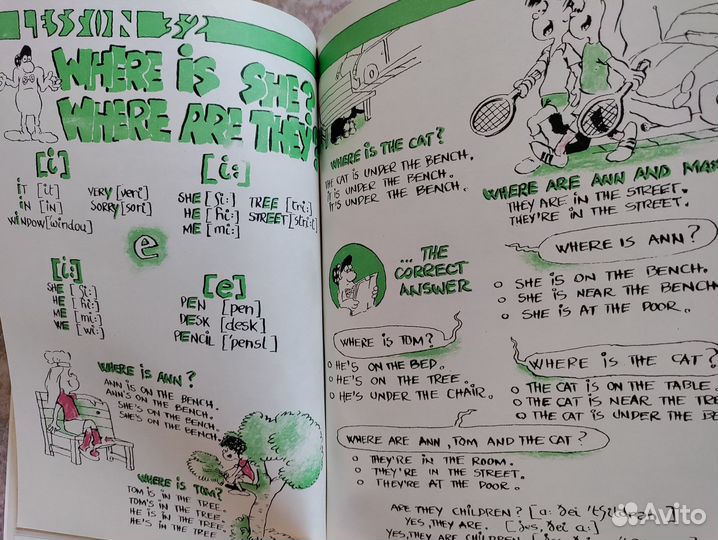 LESSON
WHERE IS SHE?
WHERE ARE THEY?
[i]
IT [it]
IN [in]
WINDOW [windou]
VERY [veri]
SORRY [sori]
[i:]
SHE [ʃi:]
HE [hi:]
ME [mi:]
TREE [tri:]
STREET [stri:t]
e
[i:]
SHE [ʃi:]
HE [hi:]
ME [mi:]
WE [wi:]
[e]
PEN [pen]
DESK [desk]
PENCIL ['pensl]
WHERE IS ANN?
ANN IS ON THE BENCH.
ANN'S ON THE BENCH.
SHE'S ON THE BENCH.
SHE'S ON THE BENCH.
WHERE IS TOM?
TOM IS IN THE TREE.
TOM'S IN THE TREE.
HE IS IN THE TREE.
HE'S IN THE TREE.
WHERE IS THE CAT?
THE CAT IS UNDER THE BENCH.
IT IS UNDER THE BENCH.
IT'S UNDER THE BENCH.
WHERE ARE ANN AND
THEY ARE IN THE STREET.
THEY'RE IN THE STREET.
...THE
CORRECT
ANSWER
WHERE IS ANN?
SHE IS ON THE BENCH.
SHE IS NEAR THE BENCH
SHE IS AT THE DOOR.
WHERE IS TOM?
HE'S ON THE BED.
HE'S ON THE TREE.
HE'S UNDER THE CHAIR.
WHERE IS THE CAT?
THE CAT IS ON THE TABLE
THE CAT IS NEAR THE
THE CAT IS UNDER THE
WHERE ARE ANN, TOM AND THE CAT?
THEY'RE IN THE ROOM.
THEY'RE IN THE STREET.
THEY'RE AT THE DOOR.
ARE THEY CHILDREN?
YES, THEY ARE.
YES, THEY ARE CHILDREN
Avito